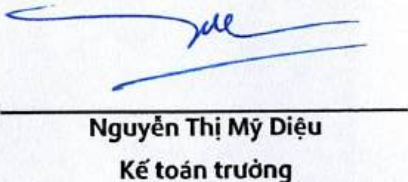 Nguyễn Thị Mỹ Diệu
Kế toán trưởng